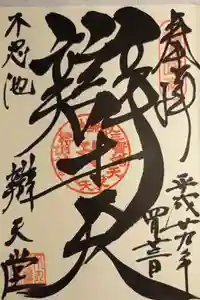 奉拝
平成廿九年
四月三日
辯才天
不忍池
辯天堂